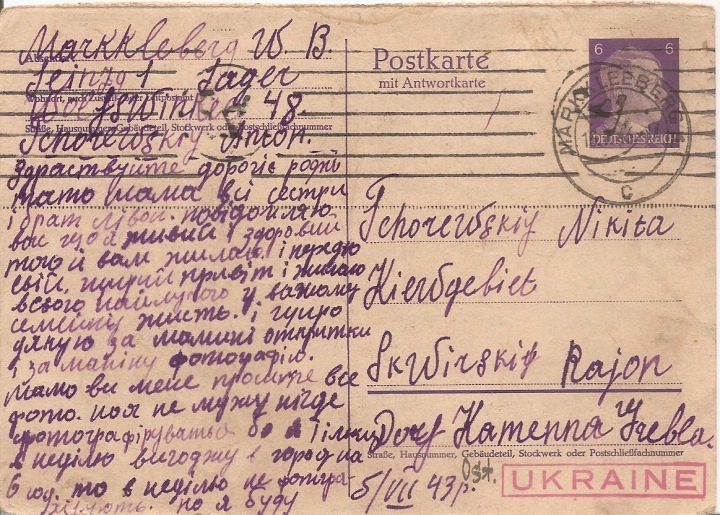 Markkleberg W. B
Absender
Leinzg 1 Lager
Wohnort, auch Zustell- oder Leitpostamt
48.
Straße, Hausnummer, Gebäudeteil, Stockwerk oder Postschließfachnummer
Tchorewskiy Anton.
здраствуйте дорогіє родні
тато мама всі сестри
і брат повідомляю
вас що я живий і здоровий
того й вам желаю. і передаю
свій, щирий прівіт і желаю
всього найлучого у вашому
семейній жисть. і щиро
дякую за мамині открытки
і за маміну фотографію.
мамо ви мене просите все
фото. но я не можу нігде
фотографіруватьсь бо я тільки
в неділю виходжу в город на
6 год. то в неділю не фотогра-
но я буду
Postkarte
mit Antwortkarte
6 6
DEUTSCHES REICH
MARKKLEEBERG
C
Tchorewskiy Nikita
Kiewgebiet
Skwirskiy Rajon
Dorf Kamenna Hrebla.
Straße, Hausnummer, Gebäudeteil, Stockwerk oder Postschließfachnummer
5/VII 43р.
Ost.
UKRAINE